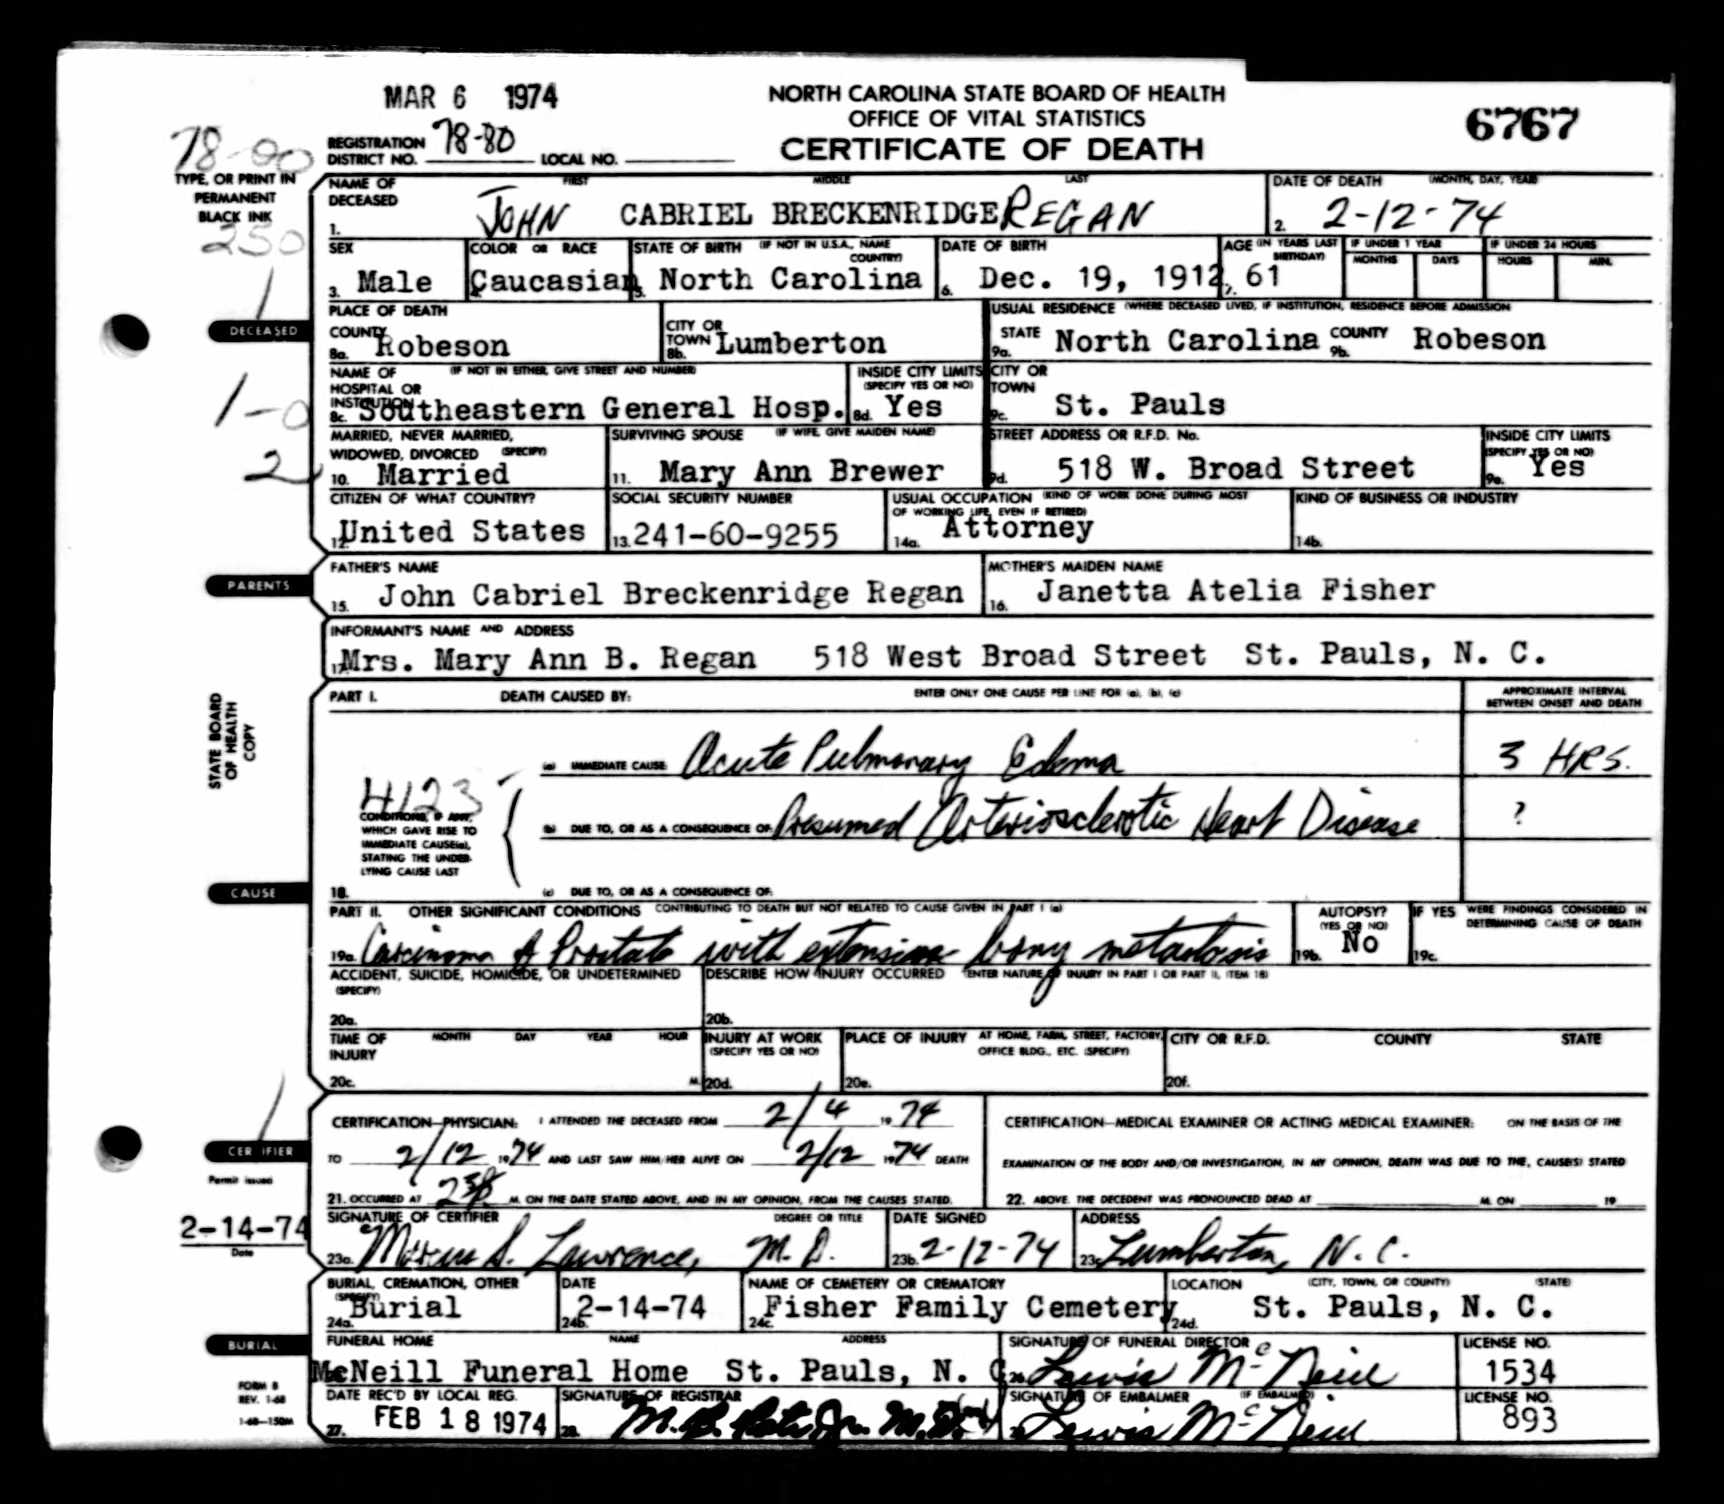 MAR 6 1974
NORTH CAROLINA STATE BOARD OF HEALTH
OFFICE OF VITAL STATISTICS
CERTIFICATE OF DEATH
6767
78-80
REGISTRATION DISTRICT NO. 78-80 LOCAL NO.
TYPE, OR PRINT IN
PERMANENT
BLACK INK
250
1
NAME OF DECEASED FIRST MIDDLE LAST
1. JOHN CABRIEL BRECKENRIDGE REGAN
DATE OF DEATH (MONTH, DAY, YEAR)
2. 2-12-74
SEX
3. Male
COLOR OR RACE
Caucasian
STATE OF BIRTH (IF NOT IN U.S.A., NAME COUNTRY)
5. North Carolina
DATE OF BIRTH
6. Dec. 19, 1912
AGE (IN YEARS LAST BIRTHDAY)
7. 61
IF UNDER 1 YEAR
MONTHS DAYS
IF UNDER 24 HOURS
HOURS MIN.
DECEASED
PLACE OF DEATH
COUNTY
8a. Robeson
CITY OR TOWN
8b. Lumberton
USUAL RESIDENCE (WHERE DECEASED LIVED, IF INSTITUTION, RESIDENCE BEFORE ADMISSION
STATE
9a. North Carolina
COUNTY
9b. Robeson
1-0
NAME OF HOSPITAL OR INSTITUTION (IF NOT IN EITHER, GIVE STREET AND NUMBER)
8c. Southeastern General Hosp.
INSIDE CITY LIMITS (SPECIFY YES OR NO)
8d. Yes
CITY OR TOWN
9c. St. Pauls
2
MARRIED, NEVER MARRIED, WIDOWED, DIVORCED (SPECIFY)
10. Married
SURVIVING SPOUSE (IF WIFE, GIVE MAIDEN NAME)
11. Mary Ann Brewer
STREET ADDRESS OR R.F.D. No.
9d. 518 W. Broad Street
INSIDE CITY LIMITS (SPECIFY YES OR NO)
9e. Yes
CITIZEN OF WHAT COUNTRY?
12. United States
SOCIAL SECURITY NUMBER
13. 241-60-9255
USUAL OCCUPATION (KIND OF WORK DONE DURING MOST OF WORKING LIFE, EVEN IF RETIRED)
14a. Attorney
KIND OF BUSINESS OR INDUSTRY
14b.
PARENTS
FATHER'S NAME
15. John Cabriel Breckenridge Regan
MOTHER'S MAIDEN NAME
16. Janetta Atelia Fisher
INFORMANT'S NAME AND ADDRESS
17. Mrs. Mary Ann B. Regan 518 West Broad Street St. Pauls, N. C.
STATE BOARD
OF HEALTH
COPY
PART I. DEATH CAUSED BY: ENTER ONLY ONE CAUSE PER LINE FOR (a), (b), (c)
APPROXIMATE INTERVAL
BETWEEN ONSET AND DEATH
(a) IMMEDIATE CAUSE: Acute Pulmonary Edema 3 HRS.
4123
CONDITIONS, IF ANY,
WHICH GAVE RISE TO
IMMEDIATE CAUSE(a),
STATING THE UNDER-
LYING CAUSE LAST
(b) DUE TO, OR AS A CONSEQUENCE OF: Presumed Arteriosclerotic Heart Disease ?
CAUSE
18. (c) DUE TO, OR AS A CONSEQUENCE OF:
PART II. OTHER SIGNIFICANT CONDITIONS CONTRIBUTING TO DEATH BUT NOT RELATED TO CAUSE GIVEN IN PART I (a)
19a. Carcinoma of Prostate with extensive bony metastasis
AUTOPSY?
(YES OR NO)
19b. No
IF YES WERE FINDINGS CONSIDERED IN DETERMINING CAUSE OF DEATH
19c.
ACCIDENT, SUICIDE, HOMICIDE, OR UNDETERMINED
(SPECIFY)
20a.
DESCRIBE HOW INJURY OCCURRED (ENTER NATURE OF INJURY IN PART I OR PART II, ITEM 18)
20b.
TIME OF INJURY MONTH DAY YEAR HOUR
20c. M.
INJURY AT WORK
(SPECIFY YES OR NO)
20d.
PLACE OF INJURY AT HOME, FARM, STREET, FACTORY, OFFICE BLDG., ETC. (SPECIFY)
20e.
CITY OR R.F.D. COUNTY STATE
20f.
1
CERTIFIER
CERTIFICATION—PHYSICIAN: I ATTENDED THE DECEASED FROM 2/4 1974
TO 2/12 1974 AND LAST SAW HIM/HER ALIVE ON 2/12 1974 DEATH
21. OCCURRED AT M. ON THE DATE STATED ABOVE, AND IN MY OPINION, FROM THE CAUSES STATED.
CERTIFICATION—MEDICAL EXAMINER OR ACTING MEDICAL EXAMINER: ON THE BASIS OF THE
EXAMINATION OF THE BODY AND/OR INVESTIGATION, IN MY OPINION, DEATH WAS DUE TO THE, CAUSE(S) STATED
22. ABOVE. THE DECEDENT WAS PRONOUNCED DEAD AT M. ON 19
Permit issued
2-14-74
Date
SIGNATURE OF CERTIFIER DEGREE OR TITLE
23a. Marcus S. Lawrence, M. D.
DATE SIGNED
23b. 2-12-74
ADDRESS
23c. Lumberton, N. C.
BURIAL, CREMATION, OTHER
(SPECIFY)
24a. Burial
DATE
24b. 2-14-74
NAME OF CEMETERY OR CREMATORY
24c. Fisher Family Cemetery
LOCATION (CITY, TOWN, OR COUNTY) (STATE)
24d. St. Pauls, N. C.
BURIAL
FUNERAL HOME NAME ADDRESS
McNeill Funeral Home St. Pauls, N. C.
SIGNATURE OF FUNERAL DIRECTOR
26. Lewis McNeill
LICENSE NO.
1534
FORM 8
REV. 1-68
1-68—150M
DATE REC'D BY LOCAL REG.
27. FEB 18 1974
SIGNATURE OF REGISTRAR
28. M.D.
SIGNATURE OF EMBALMER (IF EMBALMED)
Lewis McNeill
LICENSE NO.
893